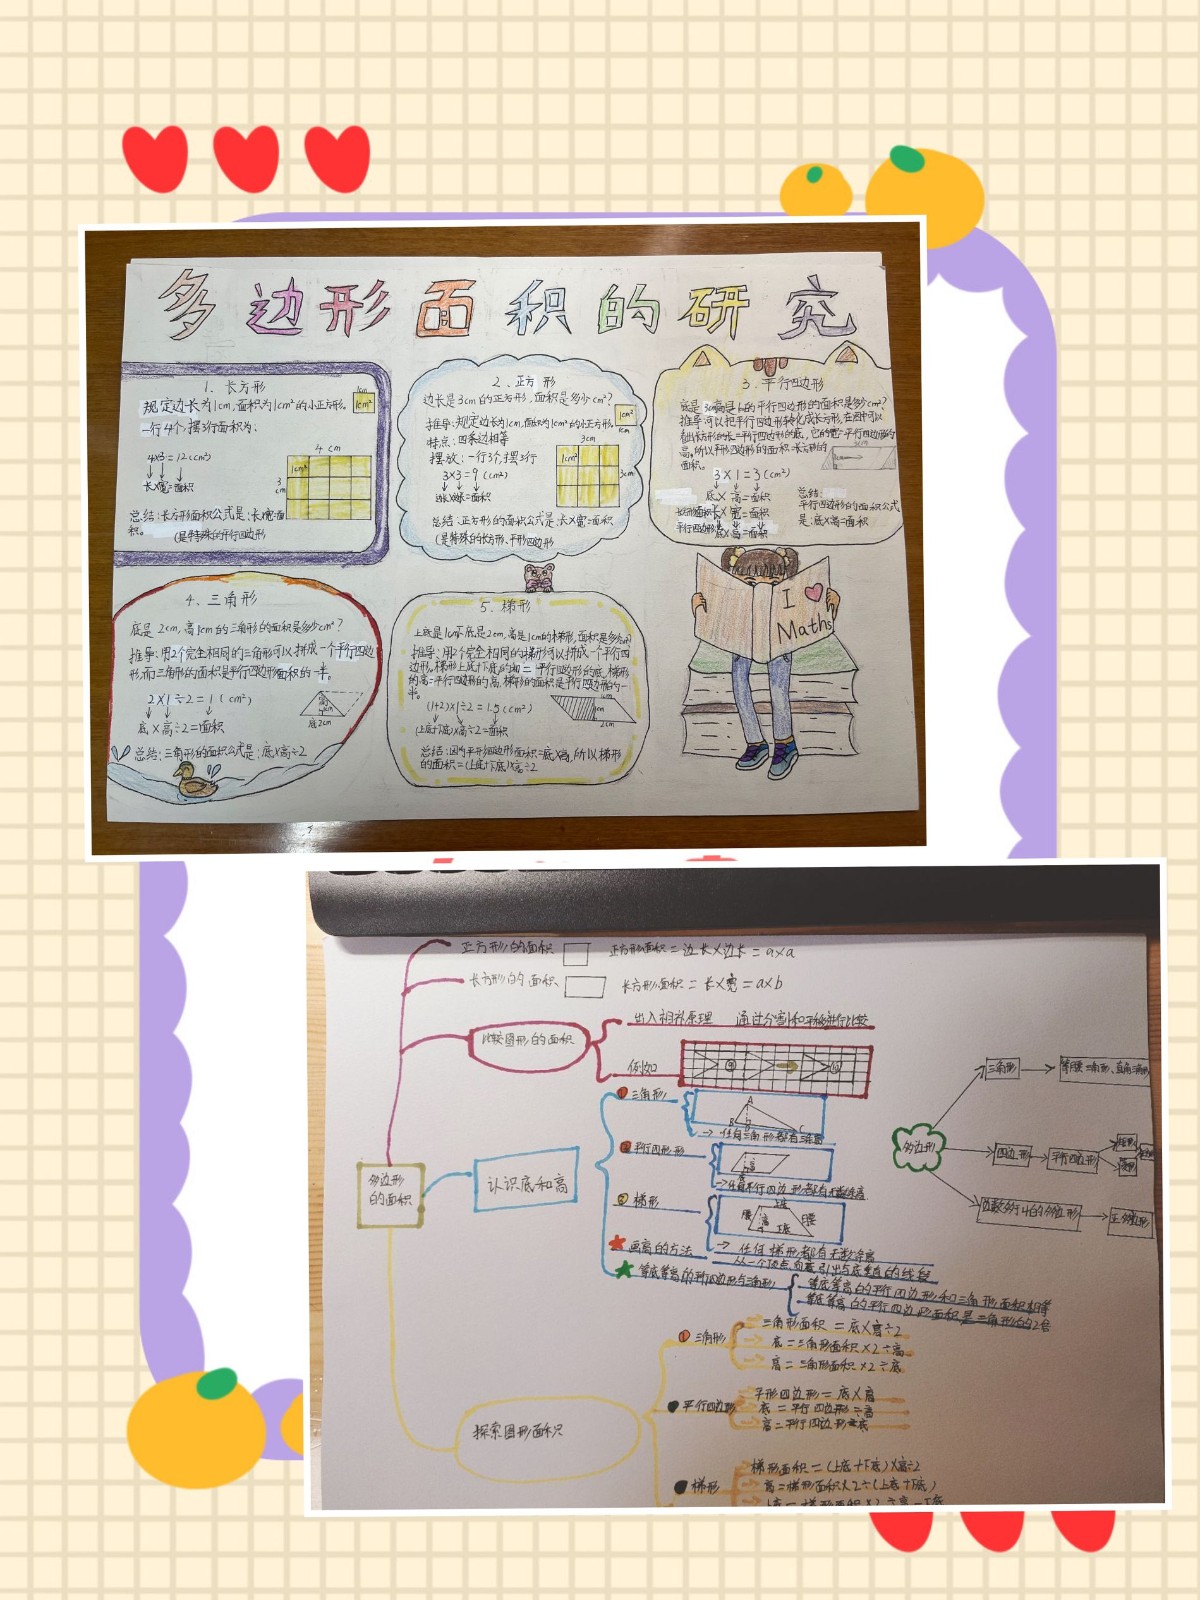 多边形面积的研究
1、长方形
规定边长为1cm,面积为1cm²的小正方形。
1cm
1cm²
一行4个,摆3行面积为:
4cm
4×3=12(cm²)
1cm²
长×宽=面积
3
cm
总结:长方形面积公式是:长×宽=面
积。
(是特殊的平行四边形
2、正方形
边长是3cm的正方形,面积是多少cm²?
推导:规定边长为1cm,面积为1cm²的小正方形。
1cm²
1cm
特点:四条边相等
3cm
摆放:一行3个,摆3行
1cm²
3×3=9(cm²)
3cm
边长×边长=面积
总结:正方形的面积公式是:长×宽=面积
(是特殊的长方形、平形四边形
3、平行四边形
底是3cm高是1cm的平行四边形的面积是多少cm²?
推导可以把平行四边形转化成长方形,在图中可以
看出长方形的长=平行四边形的底,它的宽=平行四边形的
高,所以平形四边形的面积=长方形的
面积。
3×1=3(cm²)
底×高=面积
长×宽=面积
底×高=面积
总结:
平行四边形的面积公式
是:底×高=面积
4、三角形
底是2cm,高1cm的三角形的面积是多少cm²?
推导:用2个完全相同的三角形可以拼成一个平行四边
形,而三角形的面积是平行四边形面积的一半。
2×1÷2=1(cm²)
高
1cm
底2cm
底×高÷2=面积
总结:三角形的面积公式是:底×高÷2
5、梯形
上底是1cm下底是2cm,高是1cm的梯形,面积是多少cm²
推导:用2个完全相同的梯形可以拼成一个平行四
边形,梯形上底+下底的和=平行四边形的底,梯形
的高=平行四边形的高,梯形的面积是平行四边形的一
半。
(1+2)×1÷2=1.5(cm²)
1cm
2cm
(上底+下底)×高÷2=面积
总结:因为平形四边形面积=底×高,所以梯形
的面积=(上底+下底)×高÷2
I
Maths
正方形的面积 正方形面积=边长×边长=a×a
长方形的面积 长方形面积=长×宽=a×b
比较图形的面积
出入相补原理 通过分割和平移进行比较
例如
多边形
的面积
认识底和高
①三角形
A
B
C
→任何三角形都有三条高
②平行四形形
高
底
→任何平行四边形都有无数条高
③梯形
上底
腰 高 腰
下底
→任何梯形都有无数条高
画高的方法
从一个顶点向着引出与底垂直的线段
等底等高的平行四边形与三角形
等底等高的平行四边形和三角形面积相等
等底等高的平行四边形面积是三角形的2倍
多边形
三角形
等腰三角形、直角三角形
四边形
平行四边形
边数多于4的多边形
正多边形
探索图形面积
①三角形
三角形面积=底×高÷2
底=三角形面积×2÷高
高=三角形面积×2÷底
平行四边形
平形四边形=底×高
底=平行四边形÷高
高=平行四边形÷底
梯形
梯形面积=(上底+下底)×高÷2
高=梯形面积×2÷(上底+下底)
上底=梯形面积×2÷高-下底